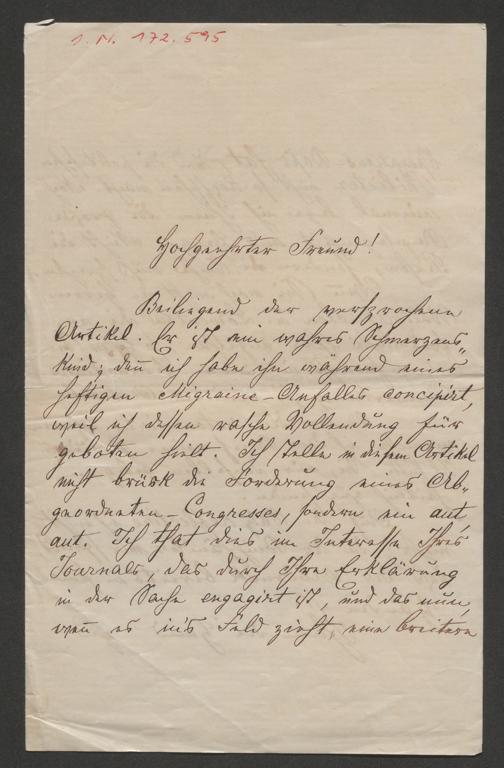 1. N. 172.595
Hochgeehrter Freund!
Beiliegend der versprochene
Artikel. Er ist ein wahres Schmerzens„
kind; deñ ich habe ihn während eines
heftigen Migraine-Anfalles concipirt,
weil ich dessen rasche Vollendung für
geboten hielt. Ich stelle in diesem Artikel
nicht brüsk die Forderung eines Ab„
geordneten-Congresses, sondern ein aut
aut. Ich that dies im Interesse Ihres
Journals, das durch Ihre Erklärung
in der Sache engagirt ist, und das nun,
weñ es in's Feld zieht, eine breitere